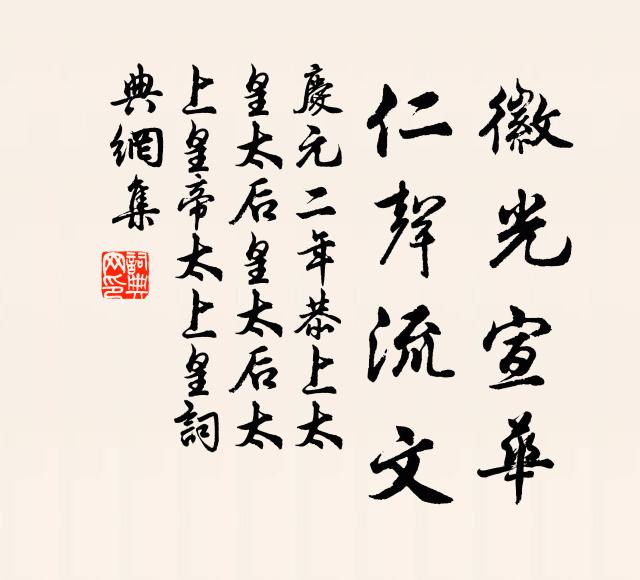 徽光宣華
仁聲流文
慶元二年恭上太
皇太后皇太后太
上皇帝太上皇詞
典網集
詞典
网印